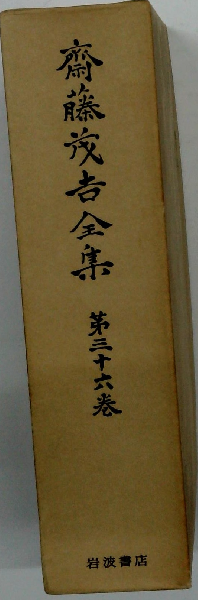 齋藤茂吉全集
第三十六巻
岩波書店